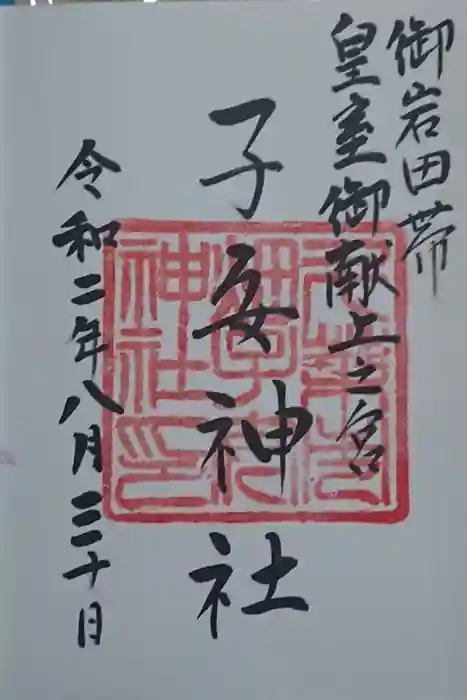 御岩田帯
皇室御献上之宮
子安神社
令和二年八月三十日